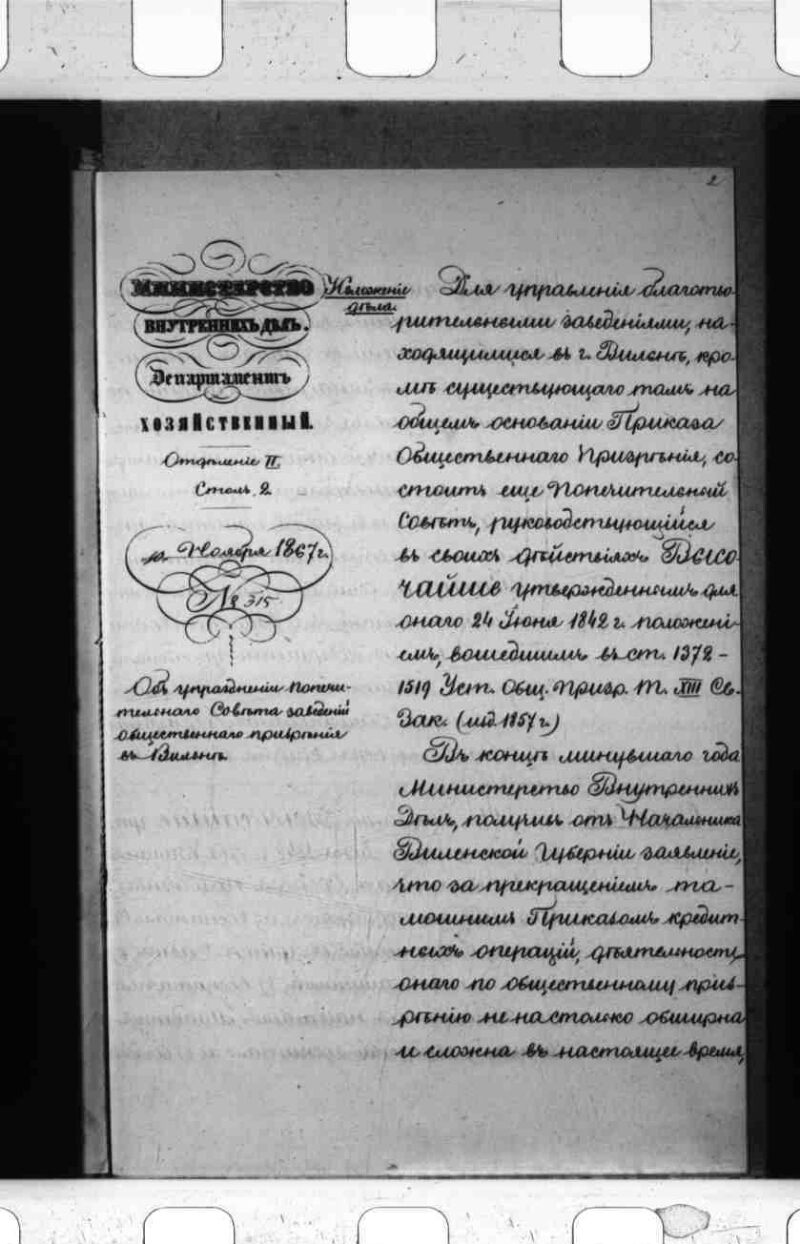 2
МИНИСТЕРСТВО
ВНУТРЕННИХЪ ДѢЛЪ.
Департаментъ
ХОЗЯЙСТВЕННЫЙ.
Отдѣленіе II.
Столъ 2.
Ноября 1867 г.
№ 315
Объ упраздненіи Попечи-
тельнаго Совѣта заведеній
общественнаго призрѣнія
въ Вильнѣ.
Изложеніе
дѣла.
Для управленія благотво-
рительными заведеніями, на-
ходящимися въ г. Вильнѣ, кро-
мѣ существующаго тамъ на
общемъ основаніи Приказа
Общественнаго Призрѣнія, со-
стоитъ еще Попечительный
Совѣтъ, руководствующійся
въ своихъ дѣйствіяхъ Высо-
чайше утвержденнымъ для
онаго 24 Іюня 1842 г. положені-
емъ, вошедшимъ въ ст. 1372 -
1519 Уст. Общ. Призр. Т. XIII Св.
Зак. (изд. 1857 г.)
Въ концѣ минувшаго года
Министерство Внутреннихъ
Дѣлъ, получивъ отъ Начальника
Виленской Губерніи заявленіе,
что за прекращеніемъ та-
мошнимъ Приказомъ кредит-
ныхъ операцій, дѣятельность
онаго по общественному приз-
рѣнію не настолько обширна
и сложна въ настоящее время,